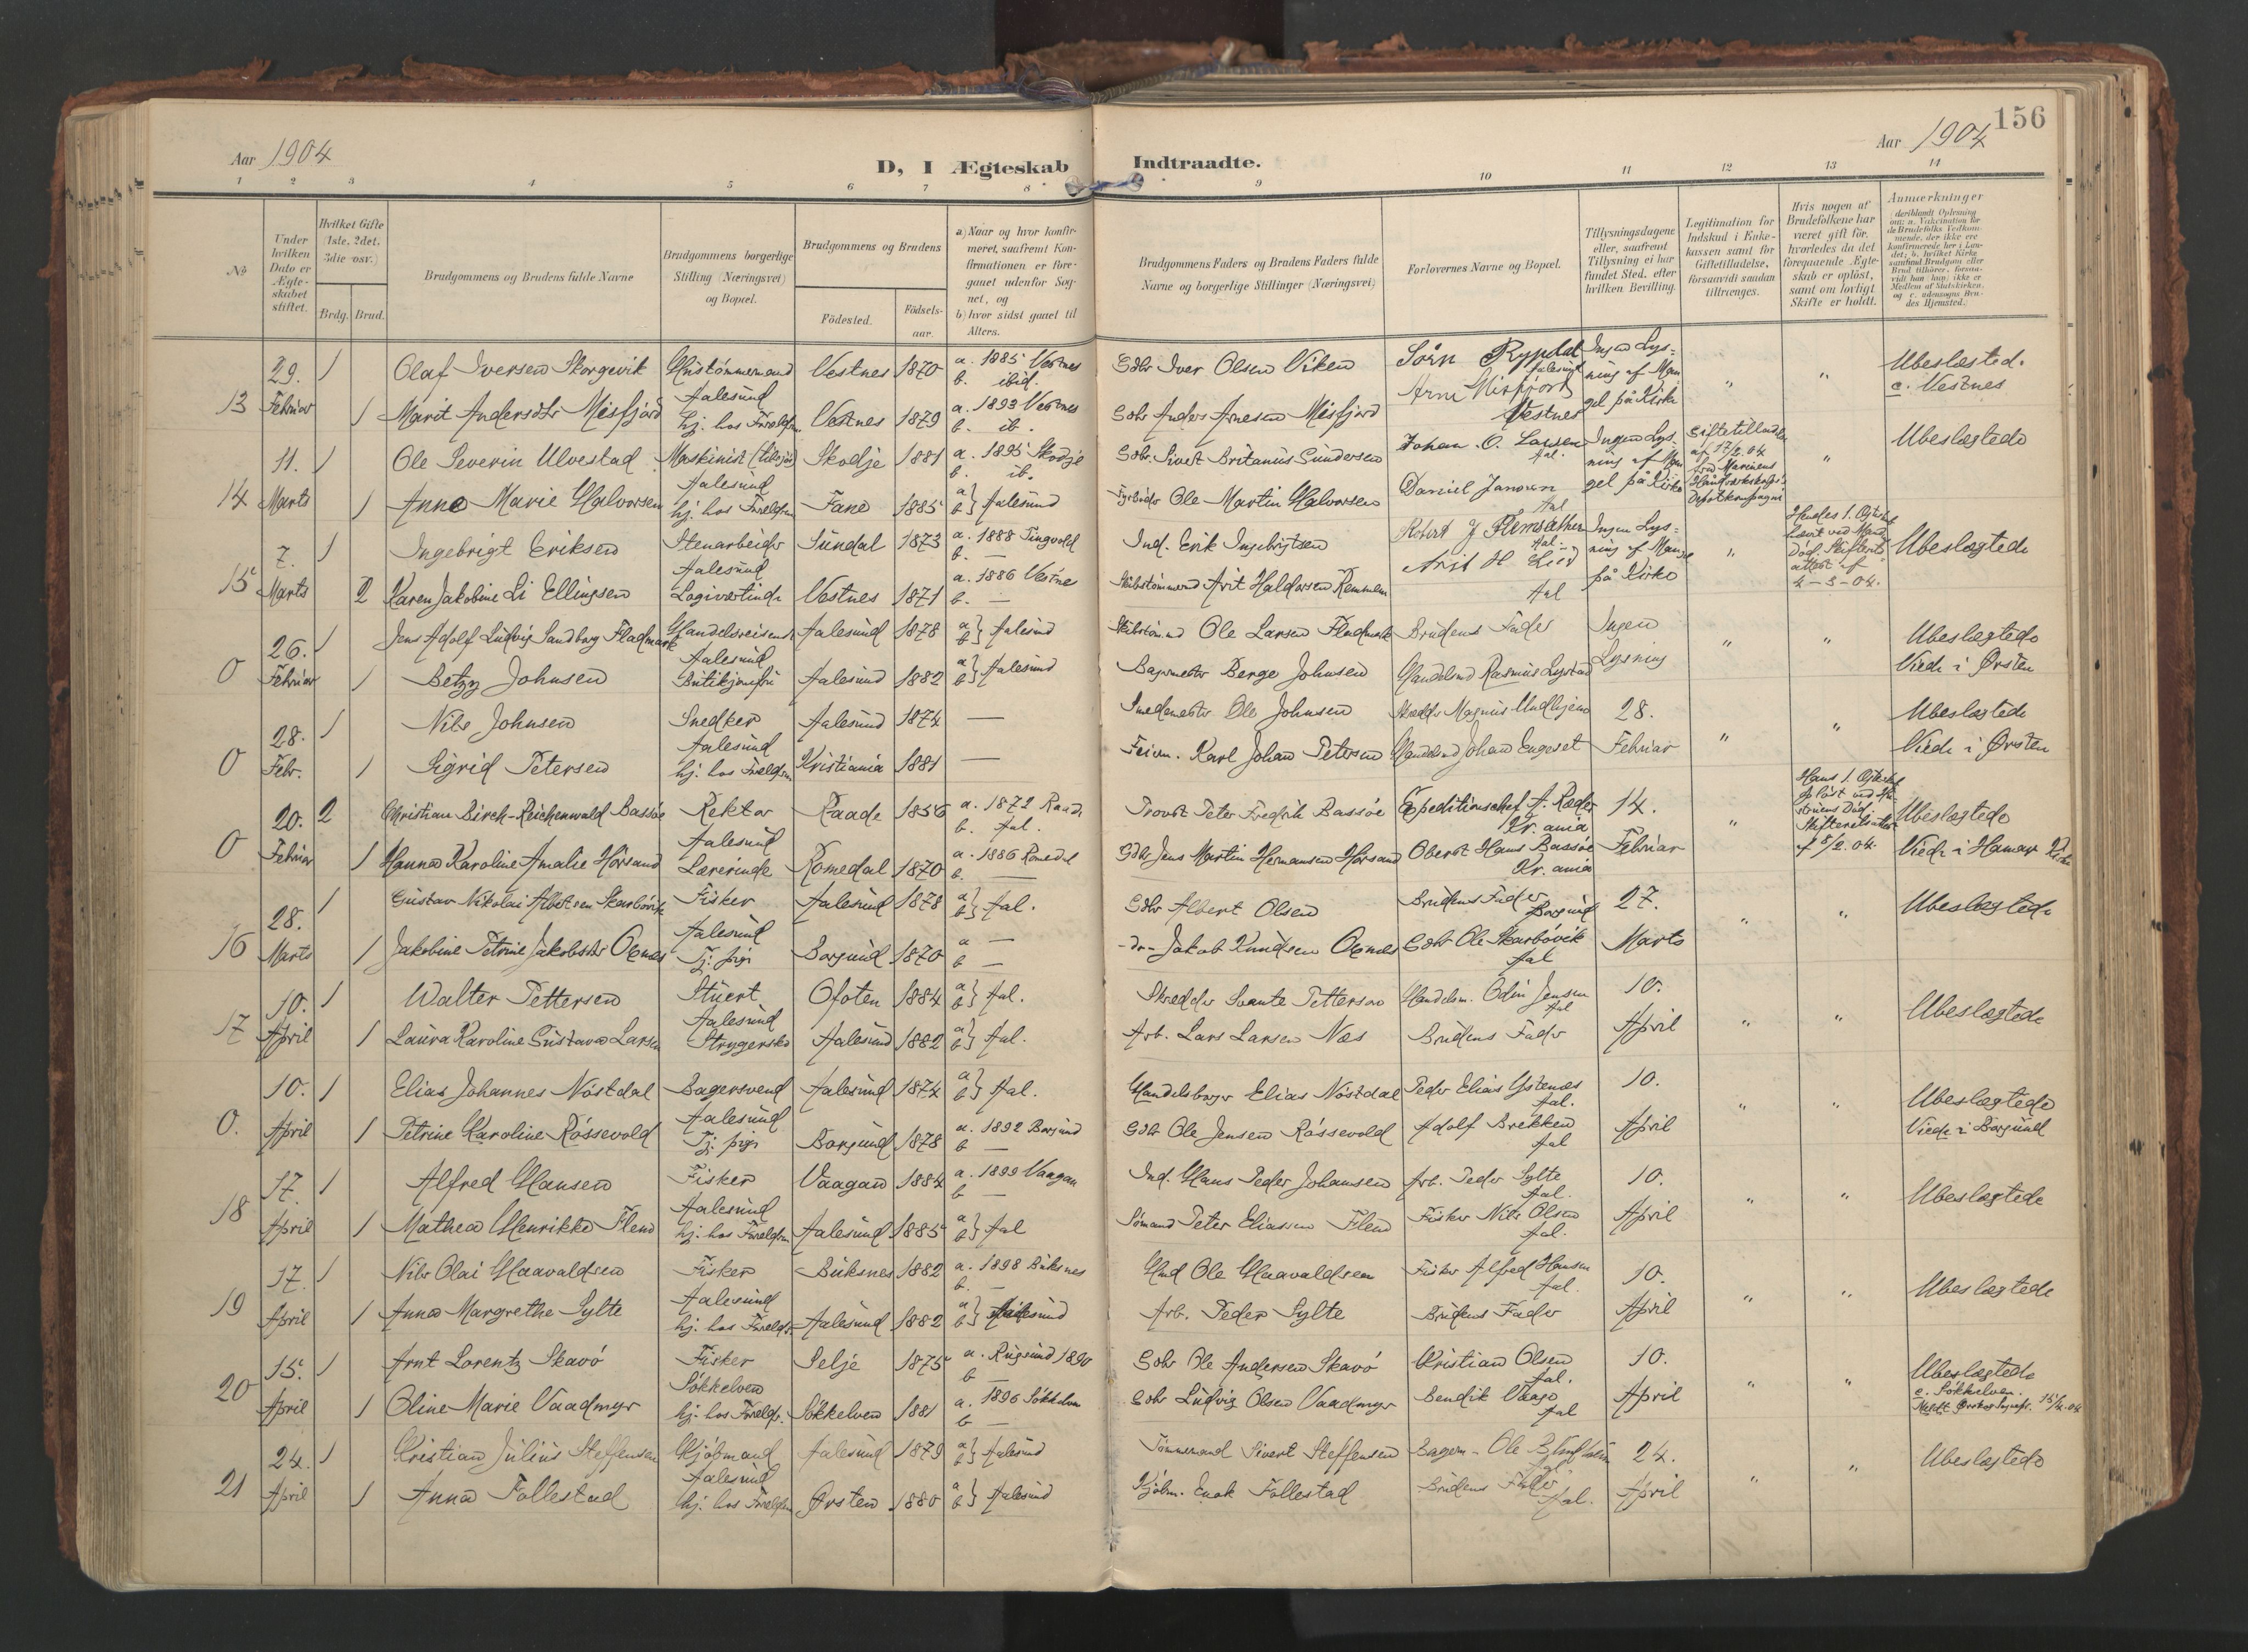 156
Aar 1904
Aar 1904
D, I Ægteskab Indtraadte.
1 2 3 4 5 6 7 8 9 10 11 12 13 14
No
Under hvilken Dato er Ægteskabet stiftet.
Hvilket Gifte (1ste, 2det, 3die osv.)
Brdg. Brud.
Brudgommens og Brudens fulde Navne
Brudgommens borgerlige Stilling (Næringsvei) og Bopæl.
Brudgommens og Brudens
Födested.
Födselsaar.
a) Naar og hvor konfirmeret, saafremt Konfirmationen er foregaaet udenfor Sognet, og
b) hvor sidst gaaet til Alters.
Brudgommens Faders og Brudens Faders fulde Navne og borgerlige Stillinger (Næringsvei)
Forlovernes Navne og Bopæl.
Tillysningsdagene eller, saafremt Tillysning ei har fundet Sted, efter hvilken Bevilling.
Legitimation for Indskud i Enkekassen samt for Giftetilladelse, forsaavidt saadan tiltrænges.
Hvis nogen af Brudefolkene har været gift för, hvorledes da det foregaaende Ægteskab er oplöst, samt om lovligt Skifte er holdt.
Anmærkninger
13
29. Februar
1 Olaf Iversen Skorgevik Hustömmermand Aalesund Vestnes 1870 a. 1885 Vestnes b. ibid. Gdbr Iver Olsen Viken Sörn Rypdal Aalesund Ingen Lysning af Mangel på Kirke " " Ubeslægted. c. Vestnes
1 Marit Andersdtr Misfjord hj. hos Foreldren Vestnes 1879 a. 1893 Vestnes b. ib. Gdbr Anders Arnesen Misfjord Arne Misfjord Vestnes
14
11. Marts
1 Ole Severin Ulvestad Maskinist (tilsjös) Aalesund Skodje 1881 a. 1895 Skodje b. ib. Gdbr. Sivert Britanus Gundersen Johan O. Larsen Aal. Ingen Lysning af Mangel på Kirke Giftetilladelse af 17/2.04 fra Marinens Haandverkskorps's Depotkompagni " Ubeslægtede
1 Anna Marie Halvorsen hj. hos Foreldren Fane 1885 a b} Aalesund Fyrböder Ole Martin Halvorsen Daniel Jansen Aal
15
7. Marts
1 Ingebrigt Eriksen Stenarbeider Aalesund Sundal 1873 a. 1888 Tingvold b. — Ind. Erik Ingebrigtsen Robert J Flemsæther Aal. Ingen Lysning af Mangel på Kirke " Hendes 1. Ægteskab hævt ved Mands Död. Skifteretsattest af 4-3-04. Ubeslægtede
2 Karen Jakobine Li Ellingsen Logivertinde Vestnes 1871 a. 1886 Vestnes b. — Skibstömmermd Arit Haldorsen Remmem Arist H Lied Aal
0
26. Februar
1 Jens Adolf Ludvig Sandborg Fladmark Handelsreisende Aalesund Aalesund 1878 a b} Aalesund Skibstöm.md Ole Larsen Fladmark Brudens Fader Ingen Lysning " " Ubeslægtede Viede i Ørsten
1 Betzy Johnsen Butikjomfru Aalesund 1882 a b} Aalesund Bagermester Berge Johnsen Handelsmd Rasmus Lystad
0
28. Febr.
1 Nils Johnsen Snedker Aalesund Aalesund 1874 — Snedmester Ole Johnsen Skrædder Magnus Undhjem 28. Februar " " Ubeslægtede Viede i Ørsten
1 Sigrid Petersen hj. hos Foreldren Kristiania 1881 — Feierm. Karl Johan Petersen Handelsmd Johan Engeset
0
20. Februar
2 Christian Birch-Reichenwald Bassöe Rektor Aalesund Raade 1856 a. 1872 Raade b. Aal. Provst Peter Fredrik Bassöe Expeditionschef A. Ræder Kr.ania 14. Februar " Hans 1. Ægteskab oplöst ved Hustruens Död. Skifteretsattest af 5/2.04. Ubeslægtede Viede i Hamar Kirke
1 Hanna Karoline Amalie Hörsand Lærerinde Romedal 1870 a. 1886 Romedal b. — Gdbr Jens Martin Hermansen Hörsand Oberst Hans Bassöe Kr.ania
16
28. Marts
1 Gustav Nikolai Albertsen Skarbövik Fisker Aalesund Aalesund 1878 a b} Aal. Gdbr Albert Olsen Brudens Fader Borgund 27. Marts " " Ubeslægtede
1 Jakobine Petrine Jakobsdtr Oxnes Tj. pige Borgund 1870 a — b — -do- Jakob Knudsen Oxnes Gdbr Ole Skarbövik Aal
17
10. April
1 Walter Pettersen Stuert Aalesund Ofoten 1884 a b} Aal. Skrædder Svante Petterson Handelsm. Odin Jensen Aal 10. April " " Ubeslægtede
1 Laura Karoline Gustava Larsen Strygerske Aalesund 1882 a b} Aal. Arb. Lars Larsen Næs Brudens Fader
0.
10. April
1 Elias Johannes Nöstdal Bagersvend Aalesund Aalesund 1874 a b} Aal. Handelsborger Elias Nöstdal Peder Elias Ystenæs Aal. 10. April " " Ubeslægtede Viede i Borgund
1 Petrine Karoline Rössevold Tj. pige Borgund 1878 a. 1892 Borgund b — Gdbr Ole Jensen Rössevold Adolf Brekken Aal
18
17. April
1 Alfred Hansen Fisker Aalesund Vaagan 1884 a. 1899 Vaagan b — Ind. Hans Peder Johansen Arb. Peder Sylte Aal. 10. April " " Ubeslægtede
1 Mathea Henrikke Flem hj. hos Foreldren Aalesund 1885 a b} Aal Sömand Peter Eliassen Flem Fisker Nils Olsen Aal.
19
17. April
1 Nils Olai Haavaldsen Fisker Aalesund Buksnes 1882 a. 1898 Buksnes b. — Hmd Ole Haavaldsen Fisker Alfred Hansen Aal. 10. April " " Ubeslægtede
1 Anna Margrethe Sylte hj. hos Foreldr. Aalesund 1882 a b} Aalesund Arb. Peder Sylte Brudens Fader
20
15. April
1 Arnt Lorentz Skavö Fisker Sökkelven Selje 1875 a. Rugsund 1890 b — Gdbr Ole Andersen Skavö Kristian Olsen Aal. 10. April " " Ubeslægtede c. Sökkelven. 15/4.04
1 Oline Marie Vaadmyr hj. hos Foreldr. Sökkelven 1881 a. 1896 Sökkelven b — Gdbr Ludvig Olsen Vaadmyr Bendik Vaagö Aal
21
24. April
1 Kristian Julius Steffensen Kjöbmand Aalesund Aalesund 1879 a b} Aalesund Tömmermand Sivert Steffensen Bagerm. Ole Blindheim Aal 24. April " " Ubeslægtede
1 Anna Follestad hj. hos Foreldren Ørsten 1880 a b} Aalesund Kjöbm. Enok Follestad Brudens Fader Aal.